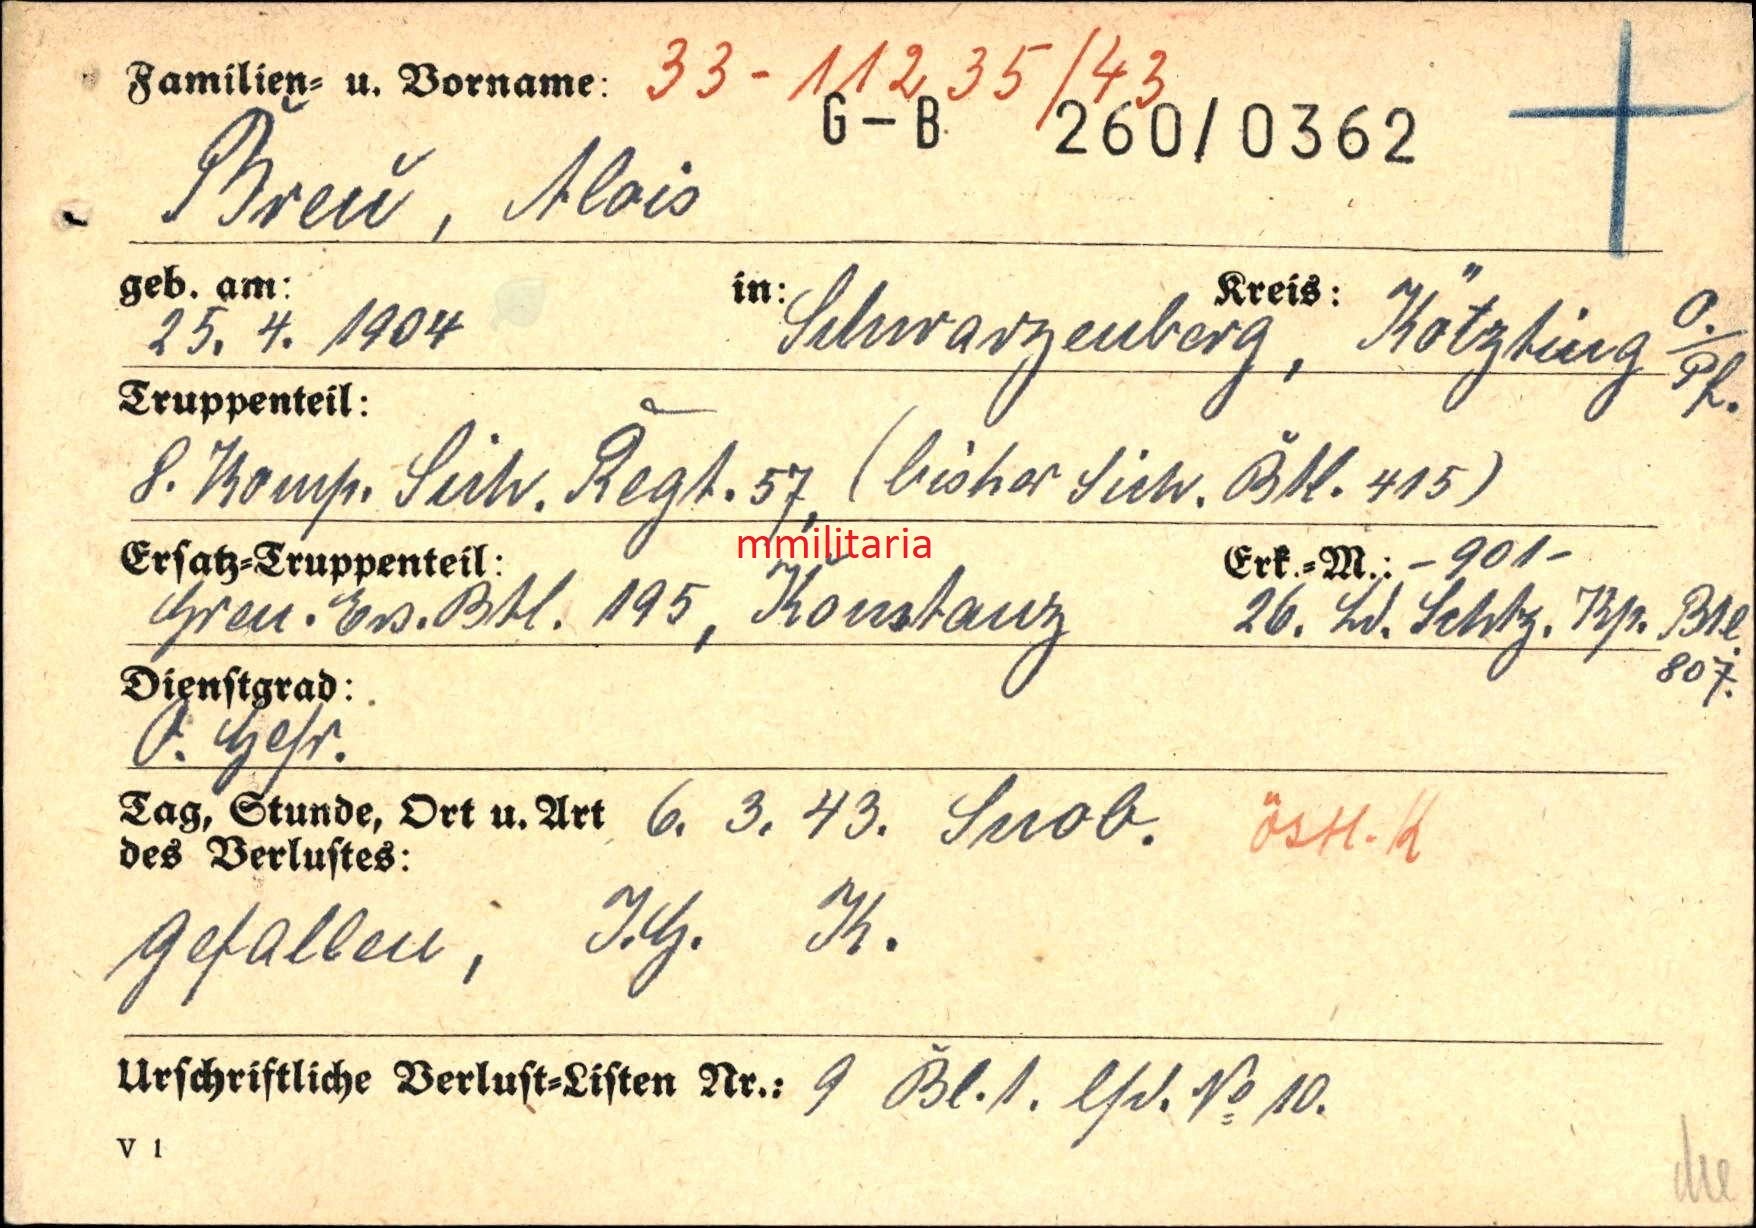 Familien- u. Vorname: 33-11235/43
G-B 260/0362
Breu, Alois
geb. am: in: Kreis:
25. 4. 1904 Schwarzenberg, Kötzting O./Pf.
Truppenteil:
8. Komp. Sich. Regt. 57, (bisher Sich. Btl. 415)
mmilitaria
Ersatz-Truppenteil: Erk.-M.: -901-
Gren. Ers. Btl. 195, Konstanz 26. Ld. Schtz. Kp. Btl.
807.
Dienstgrad:
O. Gefr.
Tag, Stunde, Ort u. Art 6. 3. 43. Snob. östl. K
des Verlustes:
gefallen, I.G. K.
Urschriftliche Verlust-Listen Nr.: 9 Bl. 1. lfd. No 10.
V 1